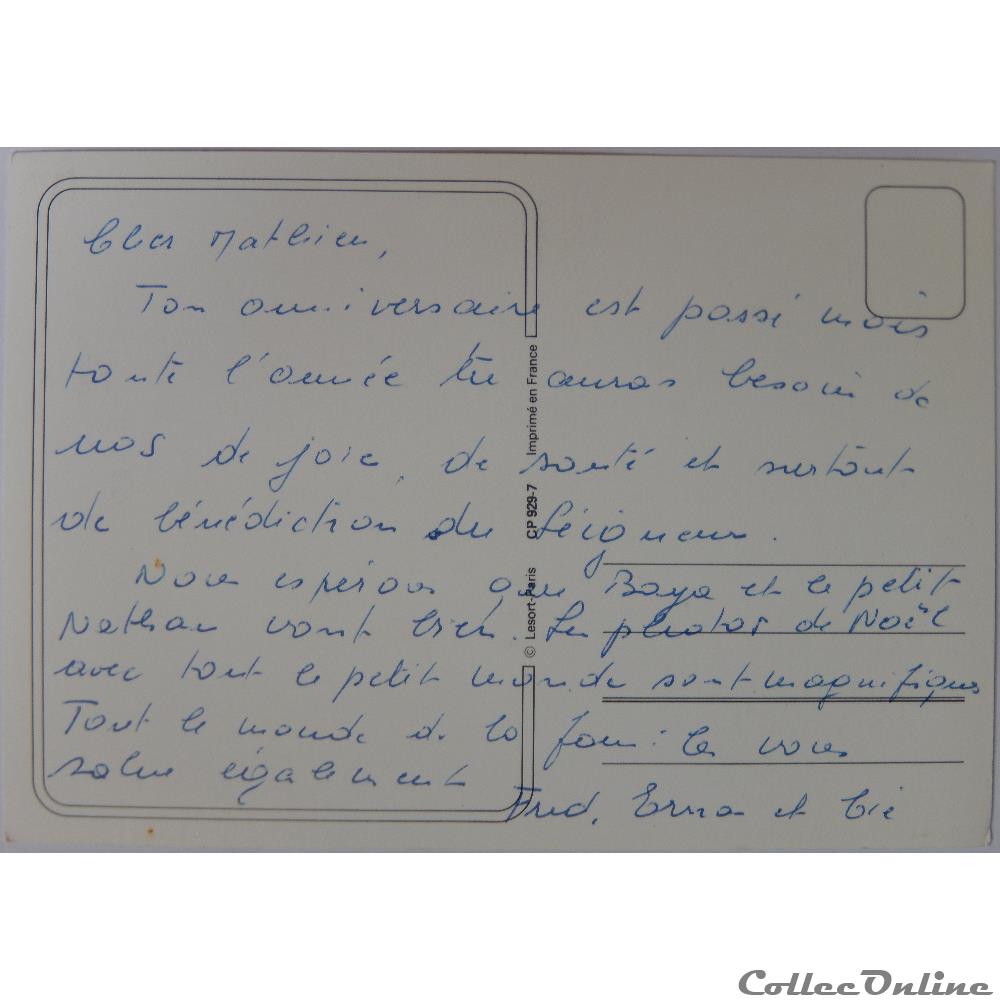 Cher Mathieu,
Ton anniversaire est passé mais
toute l'année tu auras besoin de
nos de joie, de santé et surtout
de bénédiction du Seigneur.
Nous espérons que Baya et le petit
Nathan vont bien. Les photos de Noël
avec tout le petit monde sont magnifiques
Tout le monde de la famille vous
salue également
Fred, Erna et Cie
© Lesort-Paris CP 929-7 Imprimé en France
CollecOnline